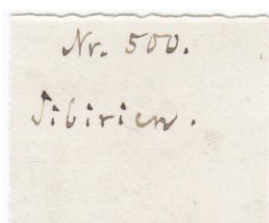 Nr. 500.
Sibirien.